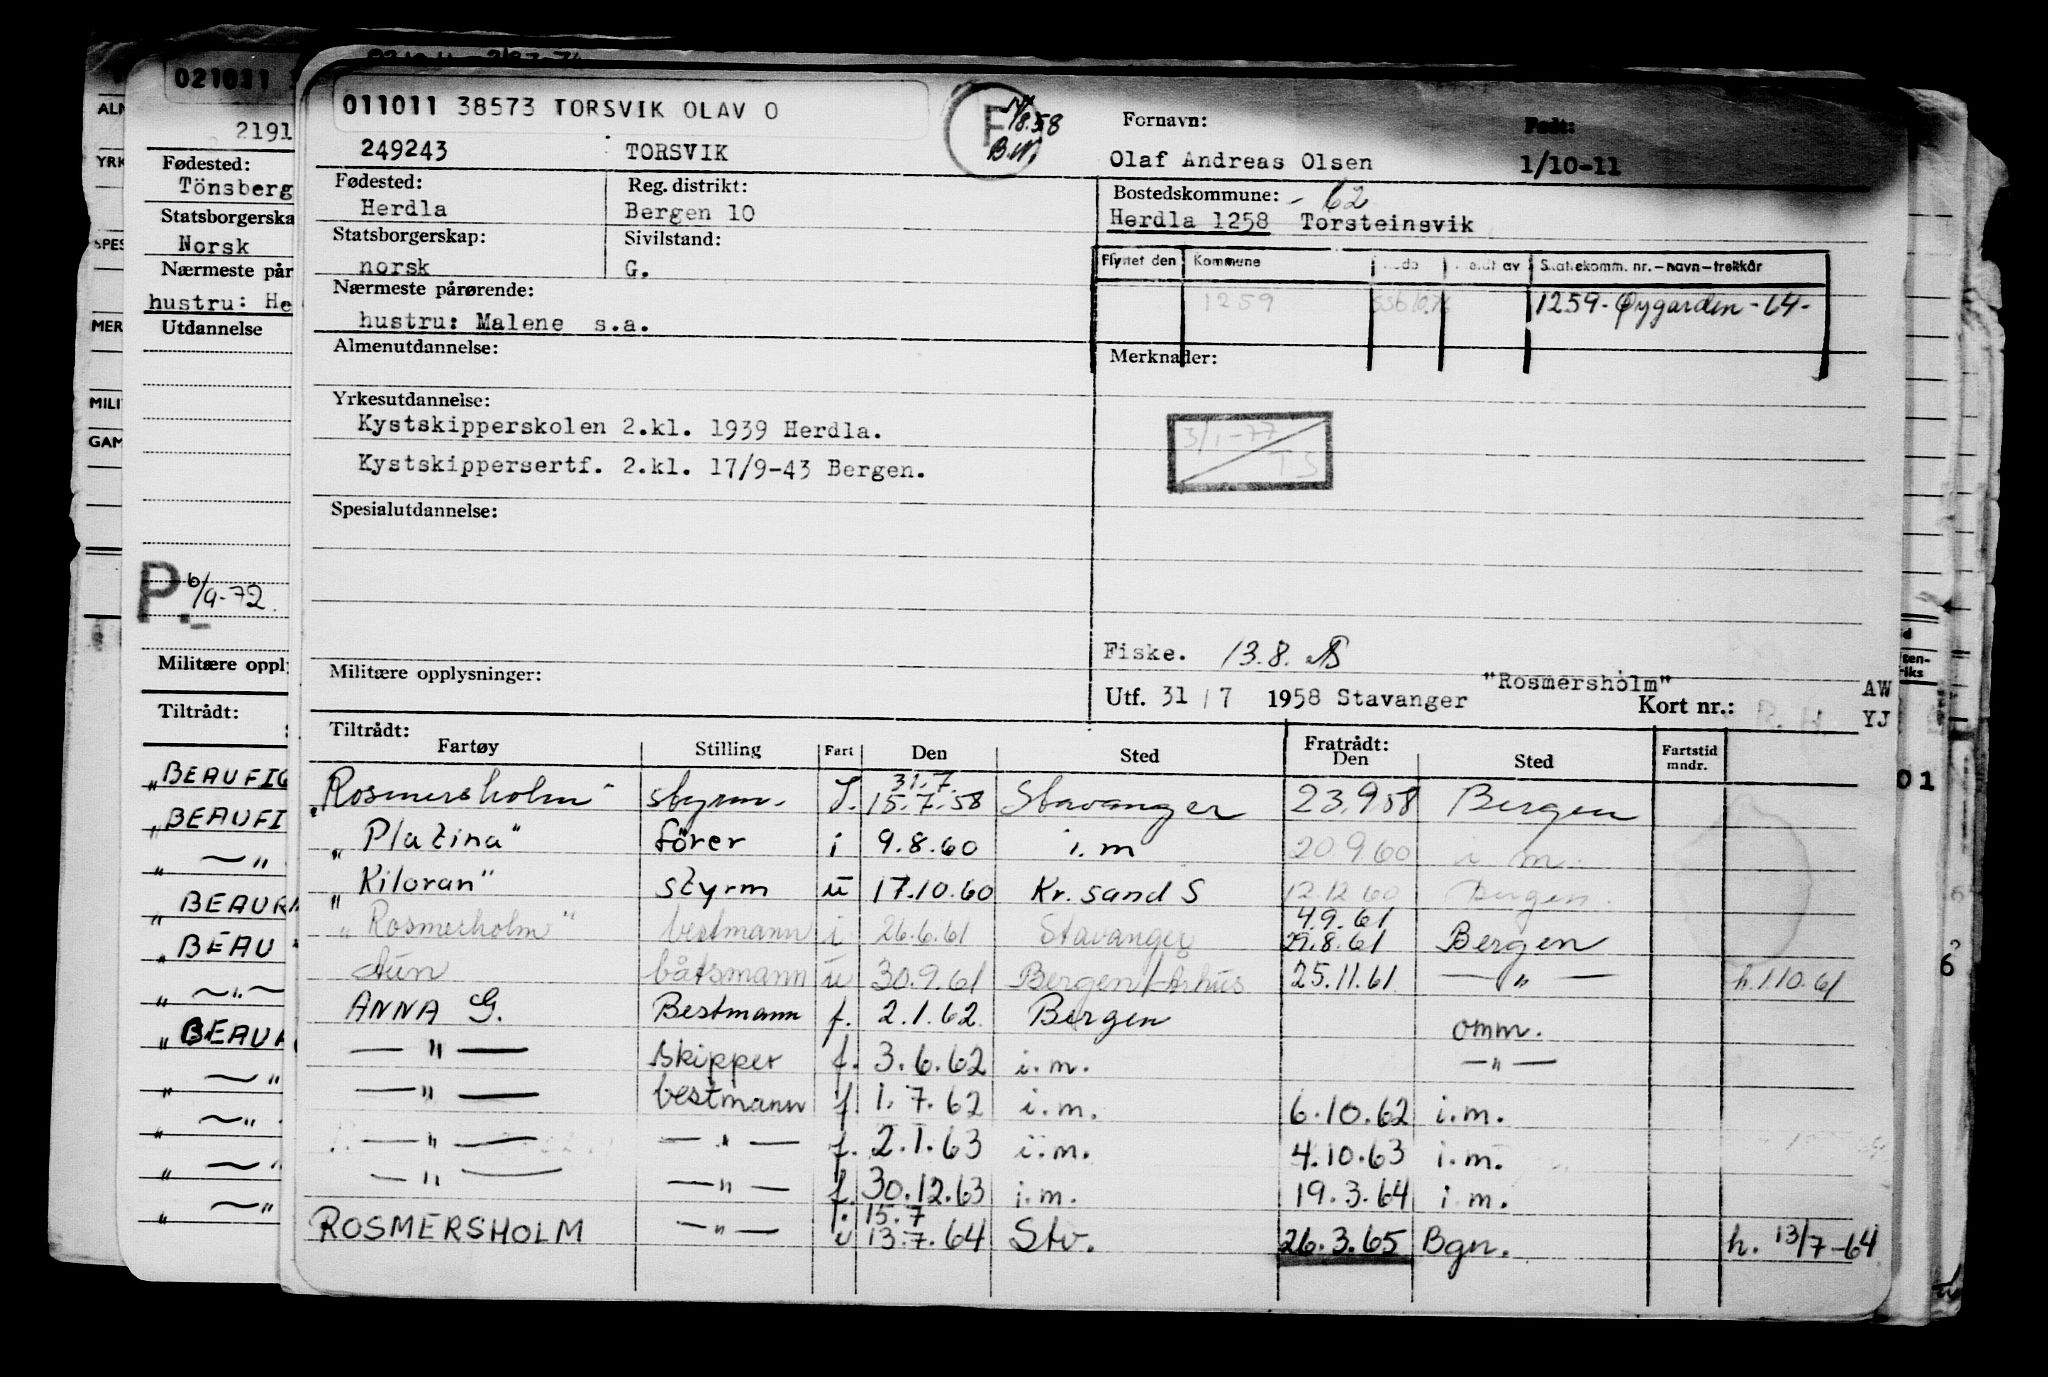 021011
2191
Fødested:
Tönsberg
Statsborgerska
Norsk
Nærmeste pår
hustru: He
Utdannelse
P. 6/9-72
Militære oppl
Tiltrådt:
"BEAUFI
"BEAUFI
" — " —
"BEAU
"BEAU
" — " —
"BEAU
ALM
YRK
SPES
MER
MILI
GAM
011011 38573 TORSVIK OLAV O
F 14/8.58 B.N.
249243 TORSVIK
Fornavn: Født:
Olaf Andreas Olsen 1/10-11
Fødested: Reg. distrikt:
Herdla Bergen 10
Bostedskommune: - 62
Herdla 1258 Torsteinsvik
Statsborgerskap: Sivilstand:
norsk G.
Flyttet den Kommune Skattekomm. nr.—navn—trekkår
1259 1259- Øygarden -64-
Nærmeste pårørende:
hustru: Malene s.a.
Almenutdannelse: Merknader:
Yrkesutdannelse:
Kystskipperskolen 2.kl. 1939 Herdla.
3/1-77
TS
Kystskippersertf. 2.kl. 17/9-43 Bergen.
Spesialutdannelse:
Fiske. 13.8.
Militære opplysninger:
Utf. 31/7 1958 Stavanger "Rosmersholm" Kort nr.: AW
YJ
Tiltrådt: Fratrådt:
Fartøy Stilling Fart Den Sted Den Sted Fartstid mndr.
31.7.
"Rosmersholm" styrm. 15.7.58 Stavanger 23.9.58 Bergen
"Platina" förer i 9.8.60 i.m 20.9.60 i m.
"Kiloran" styrm u 17.10.60 Kr.sand S 12.12.60 Bergen.
4.9.61
"Rosmerholm" bestmann i 26.6.61 Stavanger 29.8.61 Bergen
Aun båtsmann u 30.9.61 Bergen/Århus 25.11.61 — " — h.1.10.61
ANNA G. Bestmann f. 2.1.62 Bergen omm.
— " — skipper f. 3.6.62 i.m. — " —
— " — bestmann f. 1.7.62 i.m. 6.10.62 i.m.
— " — — " — f. 2.1.63 i.m. 4.10.63 i.m.
— " — — " — f. 30.12.63 i.m. 19.3.64 i.m.
f. 15.7
ROSMERSHOLM — " — u 13.7.64 Stv. 26.3.65 Bgn. h. 13/7-64